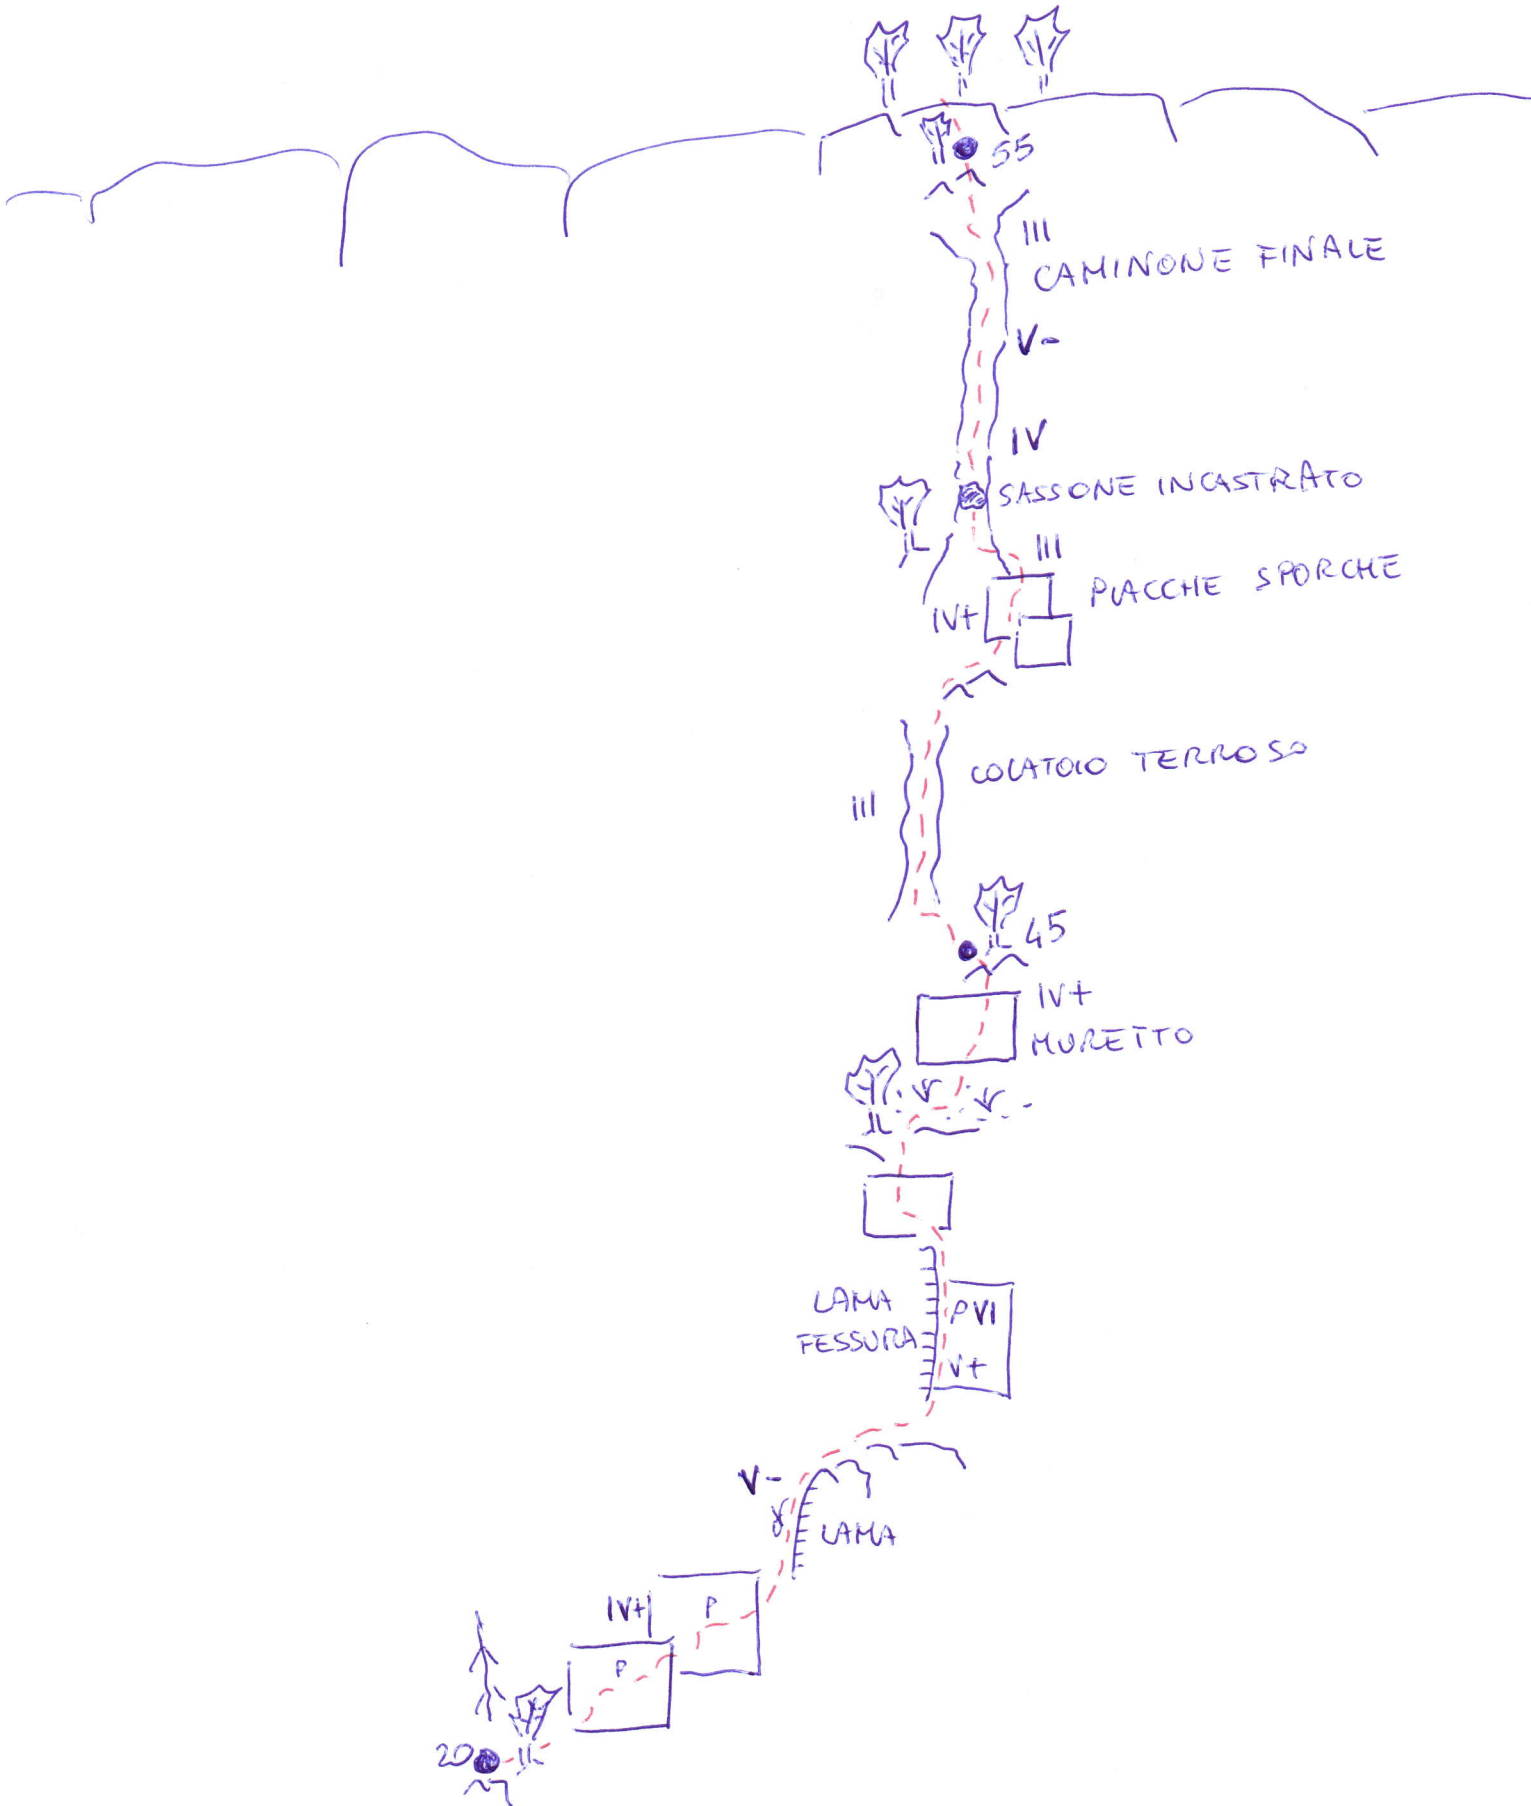 55
III
CAMINONE FINALE
V-
IV
SASSONE INCASTRATO
III
PLACCHE SPORCHE
IV+
COLATOIO TERROSO
III
45
IV+
MURETTO
LAMA
FESSURA
P VI
V+
V-
LAMA
IV+
P
P
20